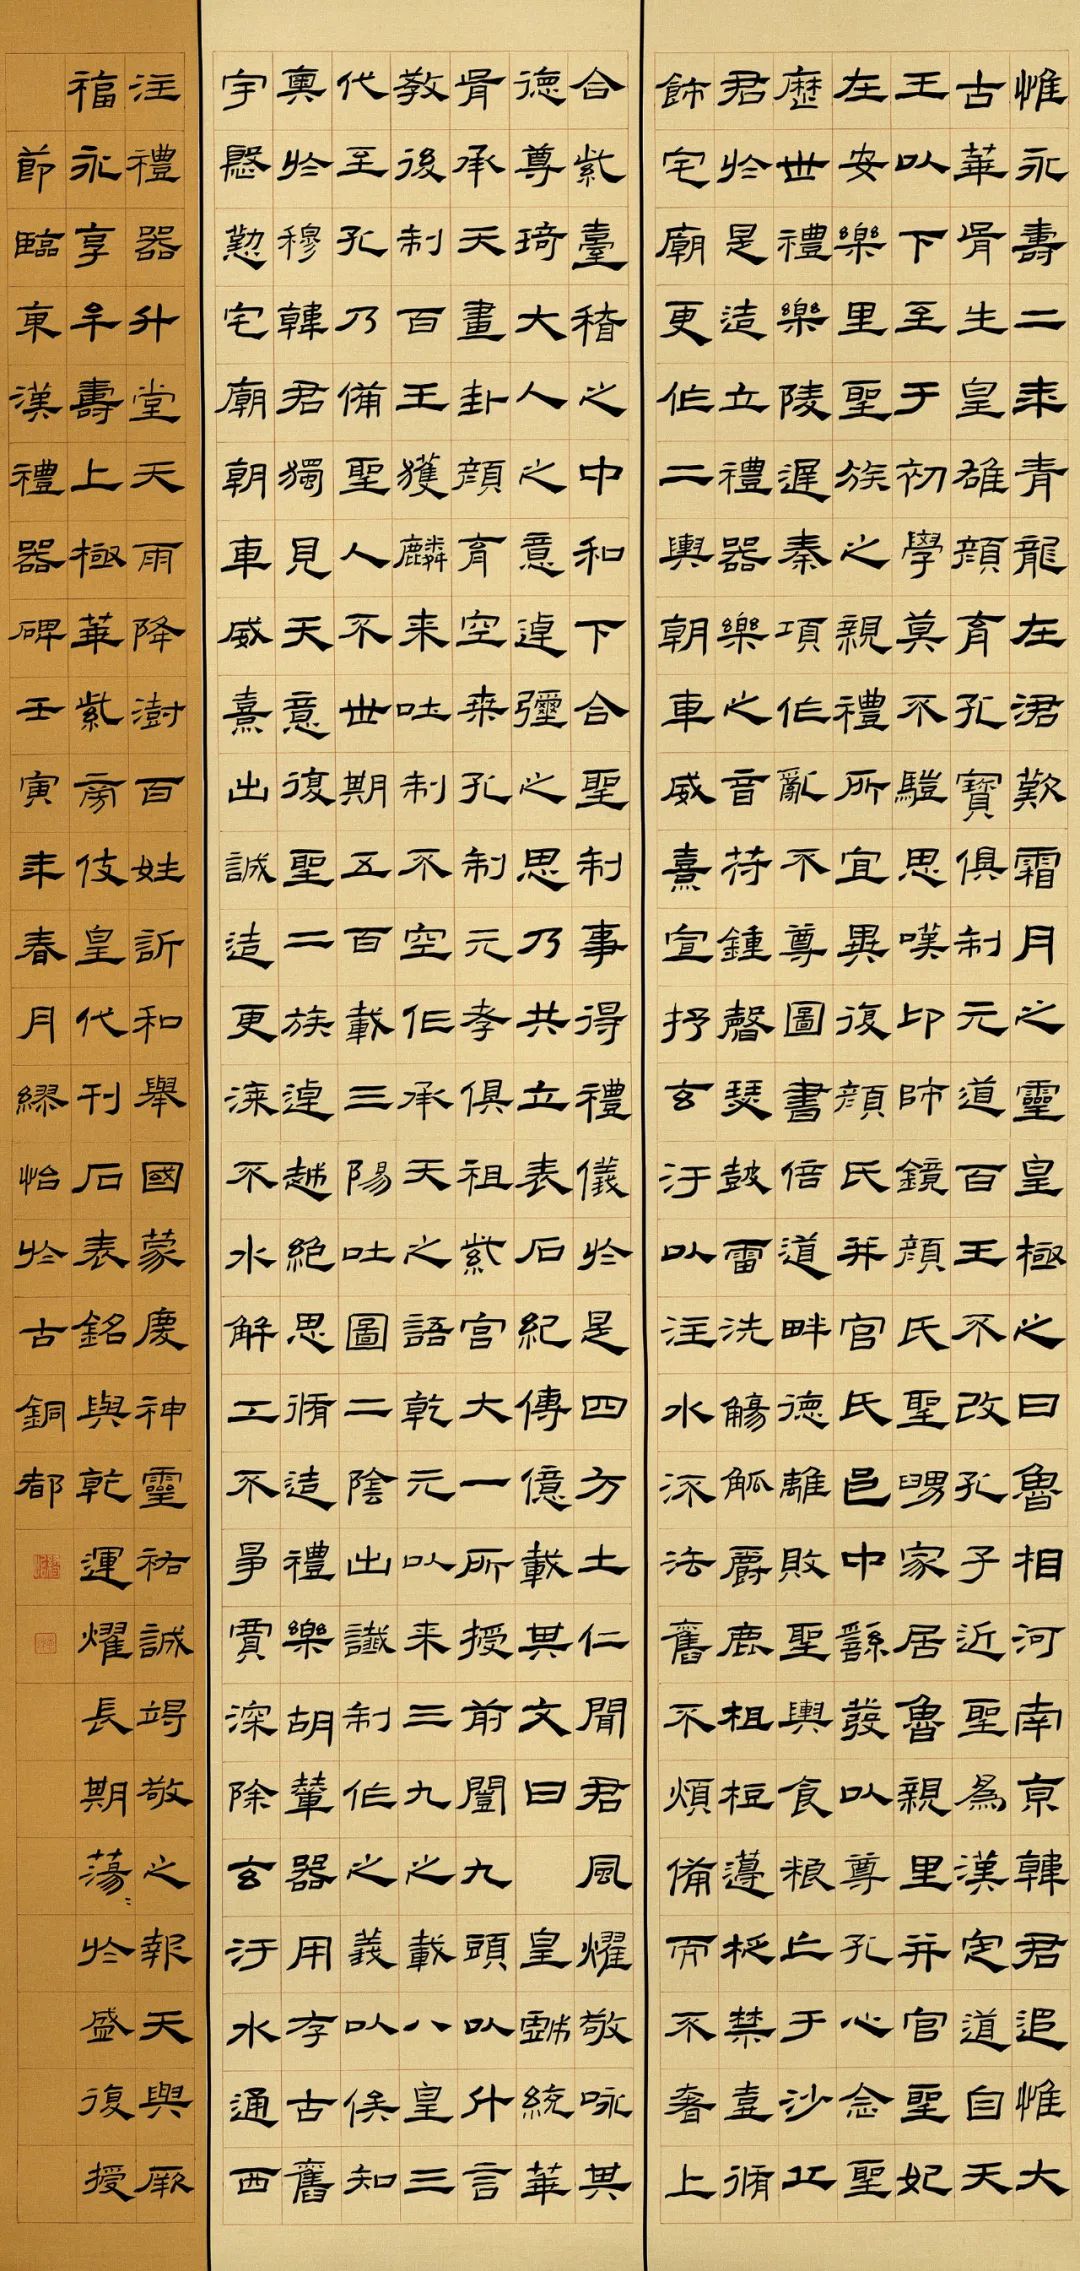 惟永壽二秊青龍在涒歎霜月之靈皇極之日魯相河南京韓君追惟大
古華胥生皇雄顏育孔寶俱制元道百王不改孔子近聖為漢定道自天
王以下至于初學莫不驥思嘆卬師鏡顏氏聖舅家居魯親里并官聖妃
在安樂里聖族之親禮所宜異復顏氏并官氏邑中繇發以尊孔心念聖
歷世禮樂陵遲秦項作亂不尊圖書倍道畔德離敗聖輿食粮亡于沙丘
君於是造立禮器樂之音苻鍾磬瑟鼓雷洗觴觚爵鹿柤梪籩柉禁壺脩
飾宅廟更作二輿朝車威熹宣抒玄汙以注水流法舊不煩備而不奢上
合紫臺稽之中和下合聖制事得禮儀於是四方土仁聞君風燿敬咏其
德尊琦大人之意逴彌之思乃共立表石紀傳億載其文曰 皇戲統華
胥承天畫卦顏育空桑孔制元孝俱祖紫宮大一所授前闓九頭以什言
教後制百王獲麟來吐制不空作承天之語乾元以來三九之載八皇三
代至孔乃備聖人不世期五百載三陽吐圖二陰出讖制作之義以俟知
奧於穆韓君獨見天意復聖二族逴越絕思脩造禮樂胡輦器用存古舊
宇慇懃宅廟朝車威熹出誠造更漆不水解工不爭賈深除玄汙水通西
注禮器升堂天雨降澍百姓訢和舉國蒙慶神靈祐誠竭敬之報天與厥
福永享牟壽上極華紫旁伎皇代刊石表銘與乾運燿長期蕩〻於盛復授
節臨東漢禮器碑壬寅秊春月繆怡於古銅都